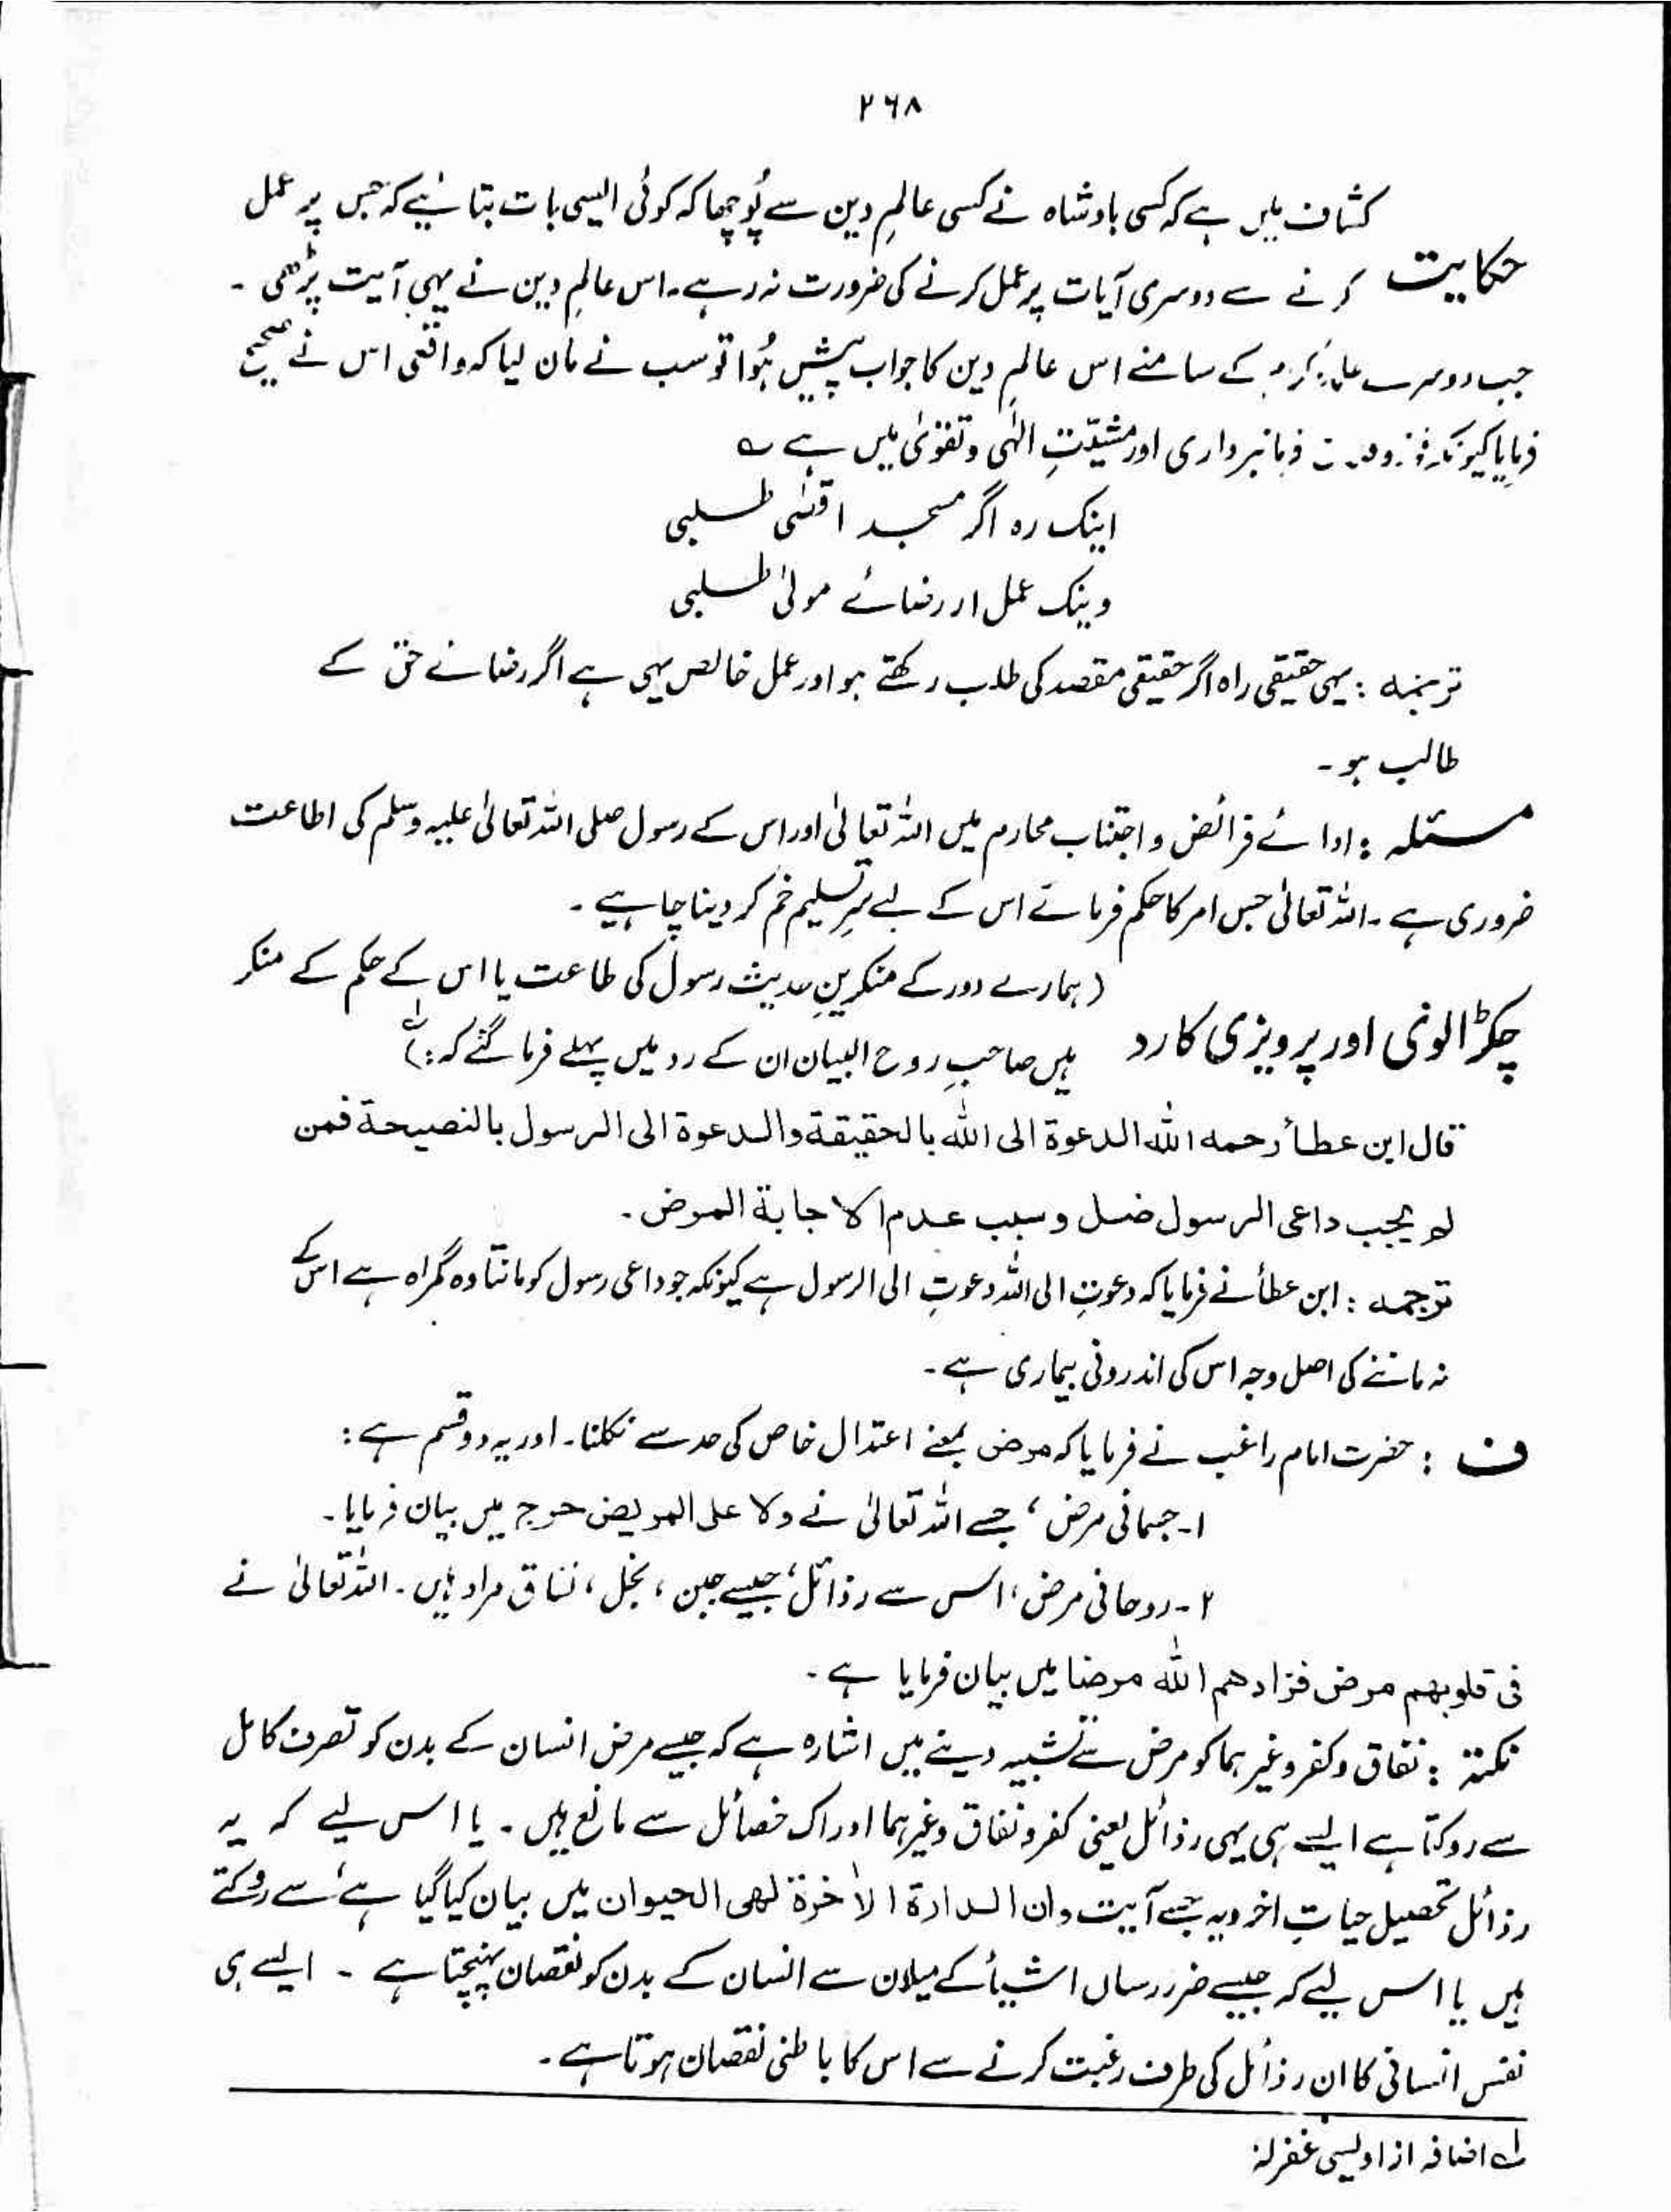 ۲۶۸
کشاف میں ہے کہ کسی بادشاہ نے کسی عالمِ دین سے پُوچھا کہ کوئی ایسی بات بتائیے کہ جس پر عمل
حکایت کرنے سے دوسری آیات پر عمل کرنے کی ضرورت نہ رہے۔ اس عالمِ دین نے یہی آیت پڑھی ۔
جب دوسرے علماء کرام کے سامنے اس عالمِ دین کا جواب پیش ہُوا تو سب نے مان لیا کہ واقعی اس نے صحیح
فرمایا کیونکہ فرمانبرداری اور مشیّتِ الٰہی و تقوٰی میں ہے ؎
اینک رہ اگر مسجد اقصٰی طلبی
وینک عمل ار رضائے مولٰی طلبی
ترجمہ : یہی حقیقی راہ اگر حقیقی مقصد کی طلب رکھتے ہو اور عمل خالص یہی ہے اگر رضائے حق کے
طالب ہو ۔
مسئلہ : ادائے فرائض و اجتناب محارم میں اللہ تعالیٰ اور اس کے رسول صلی اللہ تعالیٰ علیہ وسلم کی اطاعت
ضروری ہے ۔ اللہ تعالیٰ جس امر کا حکم فرمائے اس کے لیے سرِ تسلیم خم کر دینا چاہیے ۔
(ہمارے دور کے منکرینِ حدیث رسول کی طاعت یا اس کے حکم کے منکر
چکڑالوی اور پرویزی کا رد ہیں صاحبِ روح البیان ان کے رد میں پہلے فرما گئے کہ :) ؎۱
قال ابن عطأ رحمہ اللہ الدعوۃ الی اللہ بالحقیقۃ والدعوۃ الی الرسول بالنصیحۃ فمن
لم یجب داعی الرسول ضل و سبب عدم الاجابۃ المرض ۔
ترجمہ : ابن عطأ نے فرمایا کہ دعوتِ الی اللہ دعوتِ الی الرسول ہے کیونکہ جو داعی رسول کو مانتا وہ گمراہ ہے اس کے
نہ ماننے کی اصل وجہ اس کی اندرونی بیماری ہے ۔
ف : حضرت امام راغب نے فرمایا کہ مرض بمعنے اعتدال خاص کی حد سے نکلنا ۔ اور یہ دو قسم ہے :
۱۔ جسمانی مرض ، جسے اللہ تعالیٰ نے ولا علی المریض حرج میں بیان فرمایا ۔
۲۔ روحانی مرض ، اس سے رذائل ، جیسے جبن ، بخل ، نفاق مراد ہیں ۔ اللہ تعالیٰ نے
فی قلوبھم مرض فزادھم اللہ مرضا میں بیان فرمایا ہے ۔
نکتہ : نفاق و کفر وغیرہما کو مرض سے تشبیہ دینے میں اشارہ ہے کہ جیسے مرض انسان کے بدن کو تصرف کامل
سے روکتا ہے ایسے ہی یہی رذائل یعنی کفر و نفاق وغیرہما ادراک خصائل سے مانع ہیں ۔ یا اس لیے کہ یہ
رذائل تحصیل حیاتِ اخرویہ جسے آیت وان الدارۃ الاٰخرۃ لھی الحیوان میں بیان کیا گیا ہے ، سے روکتے
ہیں یا اس لیے کہ جیسے ضرر رساں اشیأ کے میلان سے انسان کے بدن کو نقصان پہنچتا ہے ۔ ایسے ہی
نفس انسانی کا ان رذائل کی طرف رغبت کرنے سے اس کا باطنی نقصان ہوتا ہے ۔
؎۱ اضافہ از اویسی غفرلہٗ